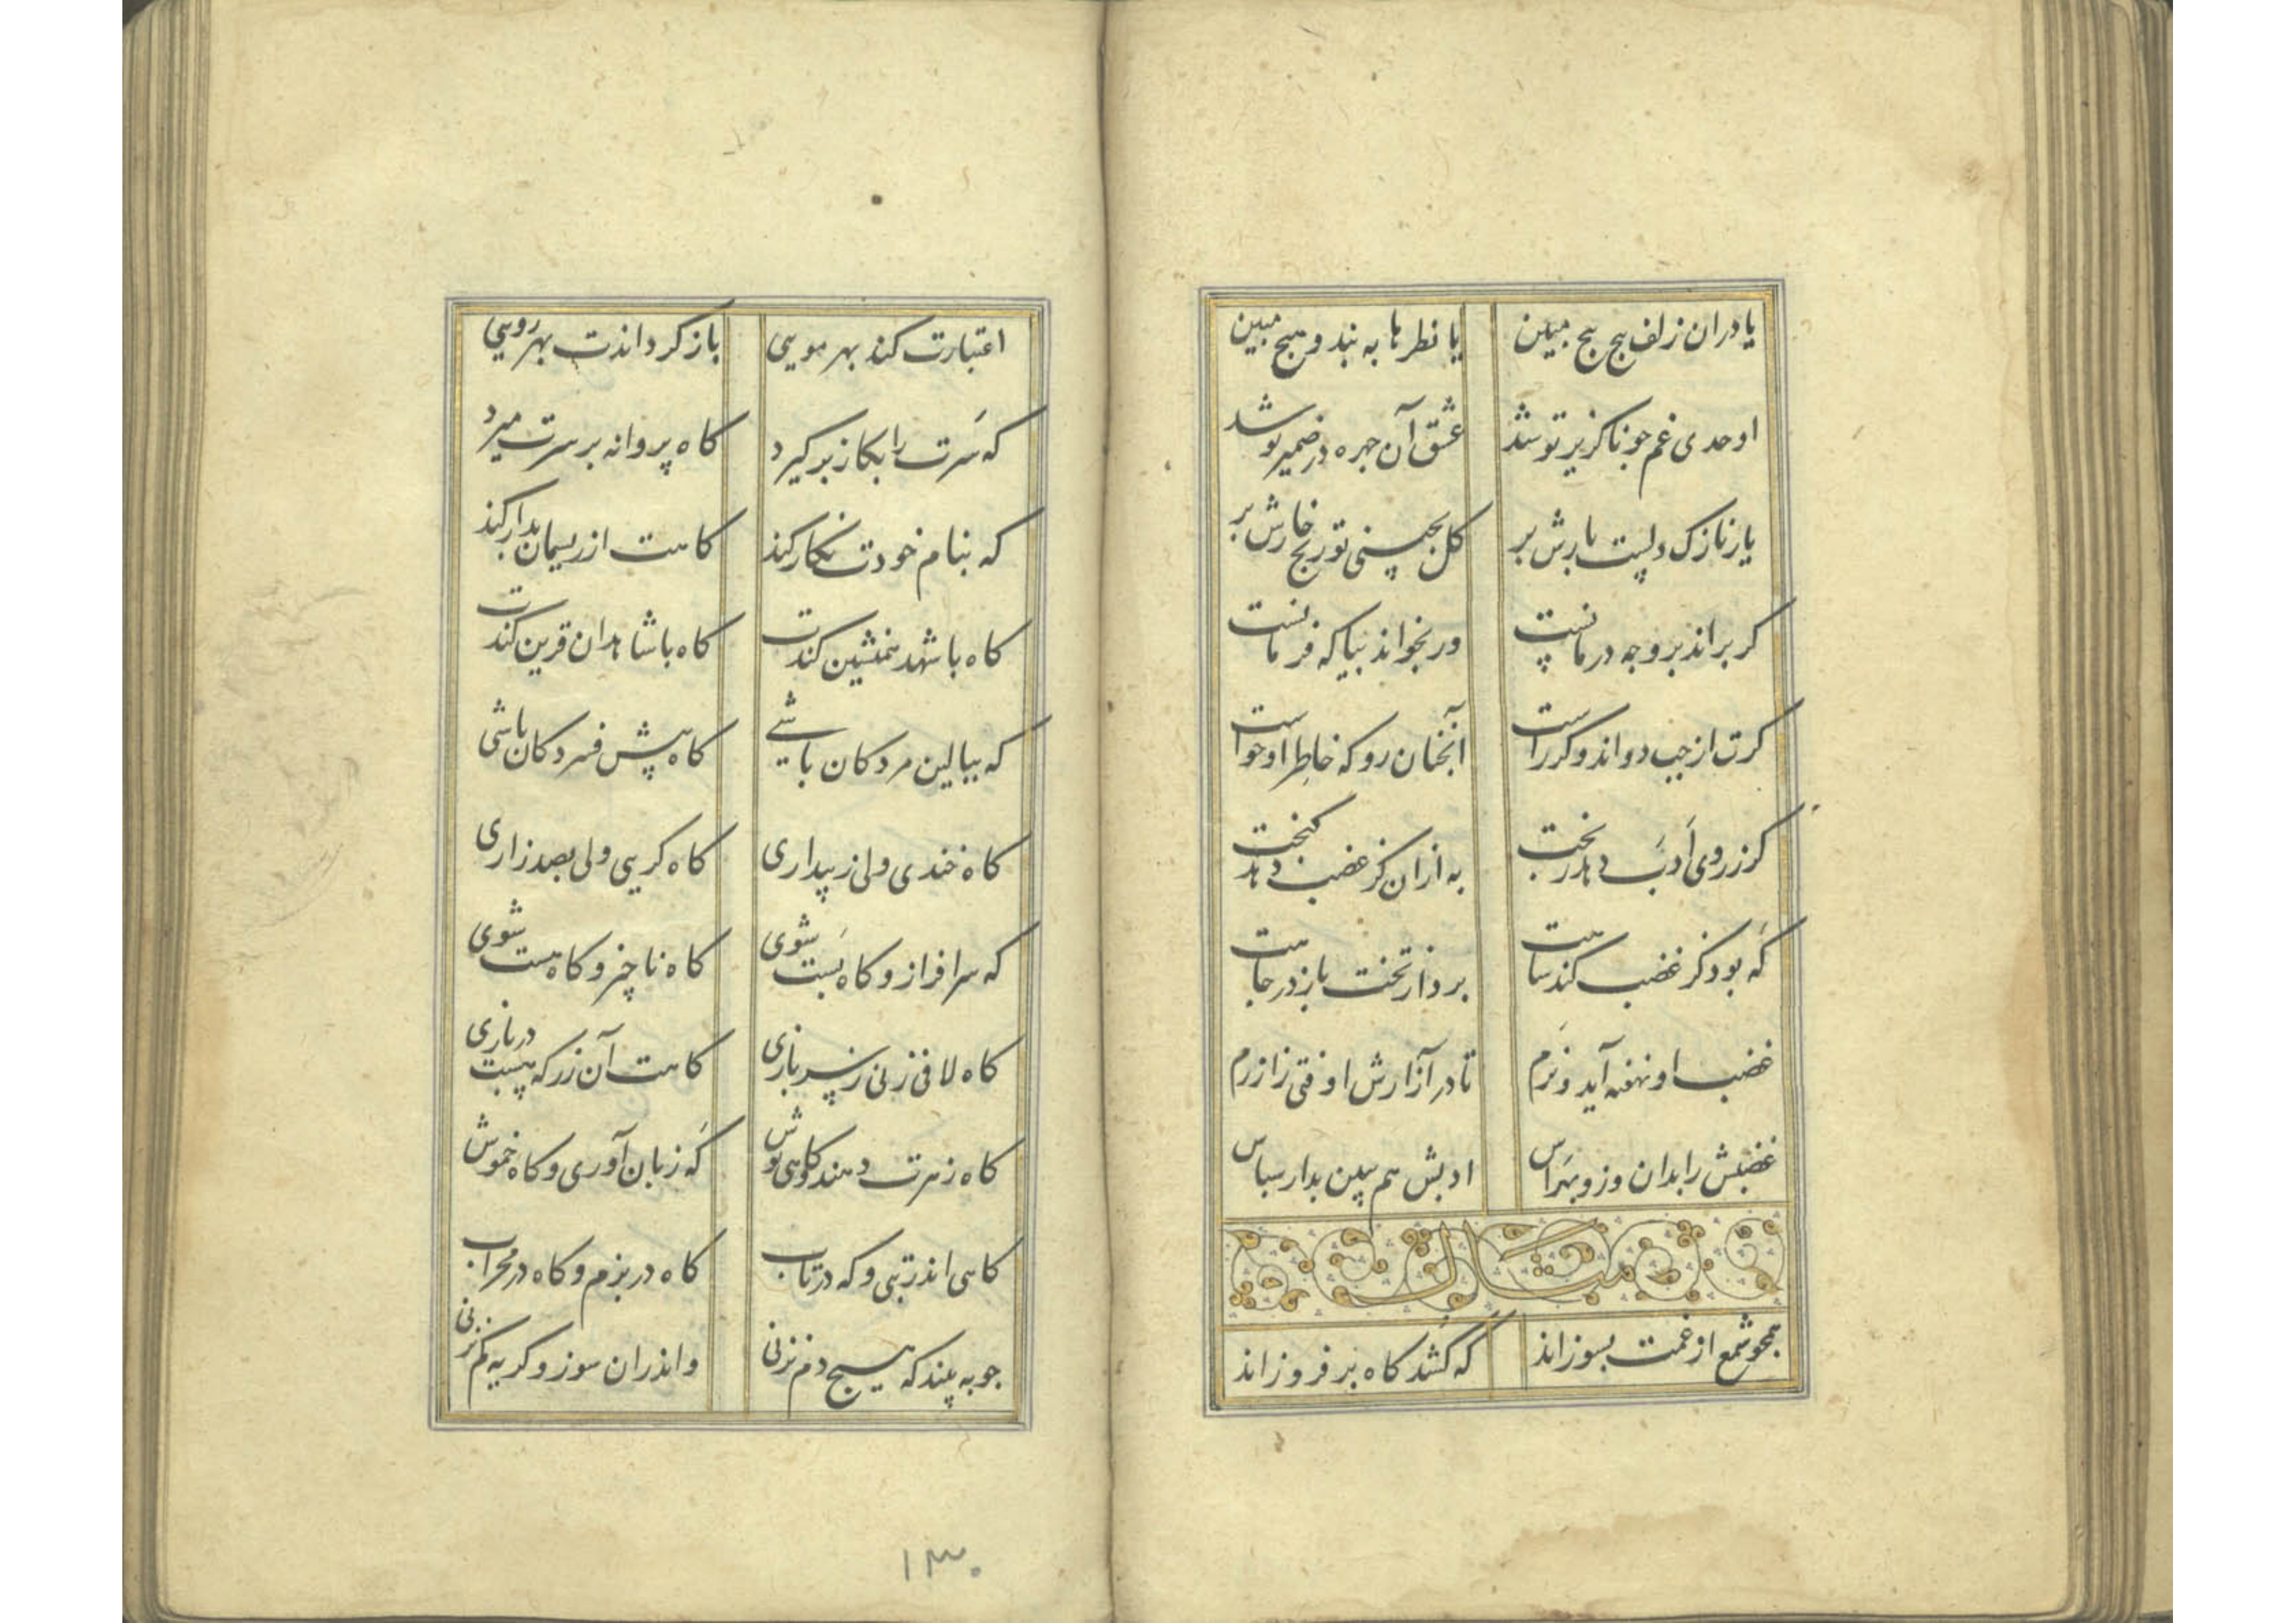 یا دران زلف پیچ پیچ مبین یا نظرها به بند و هیچ مبین
اوحدی غم چو ناکزیر تو شد عشق آن چهره در ضمیر تو شد
یار نازک دلیست بارش بر کل بچینی تو رنج خارش بر
کر براند برو چه درمانست ور بخواند بیا که فرمانست
کرت از چپ دواند و کر راست آنچنان رو که خاطر او خواست
کرز روی ادب دهد رختت به ازان کز غضب دهد تختت
که بود کز غضب کند شاهت برد از تخت باز در چاهت
غضب او نهفته آید و نرم تا در آزارش اوفتی ز ازرم
غضبش را بدان وزو بهراس ادبش هم ببین بدار سپاس
مثال
همچو شمع از غمت بسوزاند که کشد کاه بر فروزاند
اعتبارت کند بهر مویی باز کرداندت بهر رویی
که سرت را بکاز برکیرد کاه پروانه بر سرت میرد
که بنام خودت نکار کند کاهت از ریسمان بدار کند
کاه با شهد همنشین کندت کاه با شاهدان قرین کندت
که ببالین مردکان باشی کاه پیش فسردکان باشی
کاه خندی ولی ز بیداری کاه کریی ولی بصد زاری
که سرافراز و کاه پست شوی کاه ناچیز و کاه هست شوی
کاه لافی زنی ز سربازی کاهت آن زر که هست دربازی
کاه زهرت دهند و کاهی نوش که زبان آوری و کاه خموش
کاهی اندر تبی و که در تاب کاه در بزم و کاه در محراب
چو به پیند که هیچ دم نزنی واندران سوز و کریه کم نزنی
۱۳۰